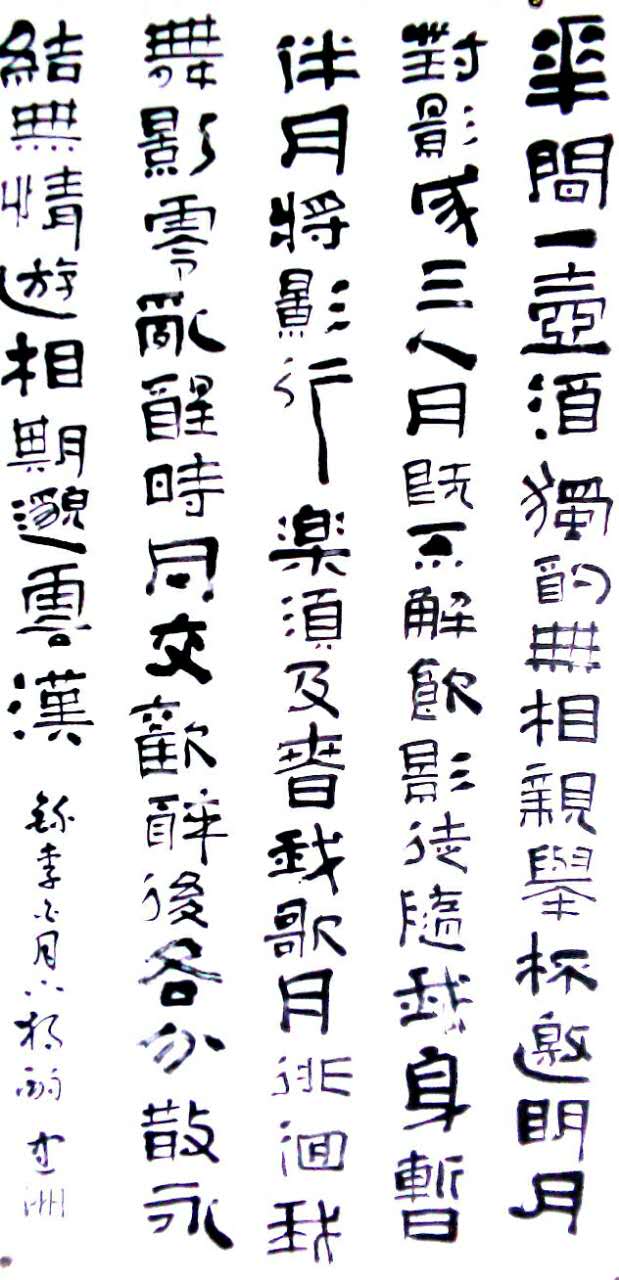 華間一壺酒獨酌無相親舉杯邀明月
對影成三人月既不解飲影徒隨我身暫
伴月將影行楽須及春我歌月徘徊我
舞影零亂醒時同交歡醉後各分散永
結無情遊相期邈雲漢
李白月下獨酌